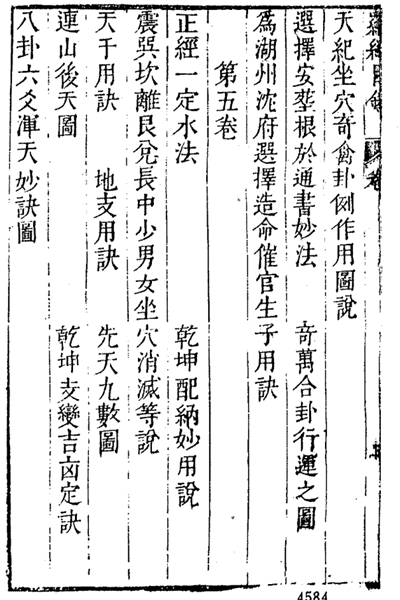 天紀坐穴奇禽卦例作用圖說
選擇安塟根於通書妙法　奇萬合卦行運之圖
爲湖州沈府選擇造命催官生子用訣
第五卷
正經一定水法　乾坤配納妙用說
震巽坎離艮兌長中少男女坐穴消滅等說
天干用訣　地支用訣　先天九數圖
連山後天圖　乾坤爻變吉凶定訣
八卦六爻渾天妙訣圖
4584